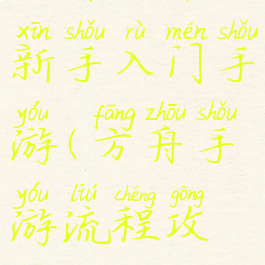 xīn shǒu rù mén shǒu
新手入门手
yóu fāng zhōu shǒu
游(方舟手
yóu liú chéng gōng
游流程攻